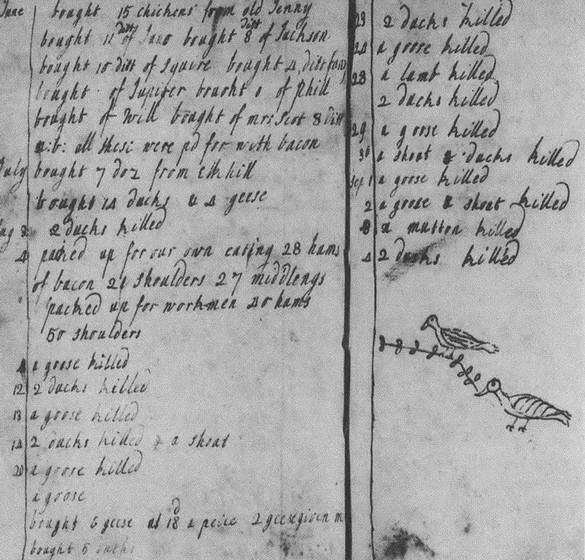 June bought 15 chickens from old Jenny
bought 11 ditt of Juno bought 8 ditt of Jackson
bought 10 ditt of Squire bought 4 ditt from
bought of Jupiter bought of Phill
bought of Will bought of mrs Scot 8 ditt
n:b: all these were pd for with bacon
July bought 7 doz from elkhill
bought 14 ducks & 4 geese
2 ducks killed
4 packed up for our own eating 28 hams
of bacon 21 shoulders 27 middlengs
packed up for workmen 40 hams
50 shoulders
a goose killed
12 2 ducks killed
13 a goose killed
14 2 ducks killed & a shoat
20 a goose killed
a goose
bought 6 geese at 18d a peice 2 geese given m
bought 5
23 2 ducks killed
24 a goose killed
28 a lamb killed
2 ducks killed
29 a goose killed
a shoat & ducks killed
sep 1 a goose killed
2 a goose & shoat killed
a mutton killed
4 2 ducks killed